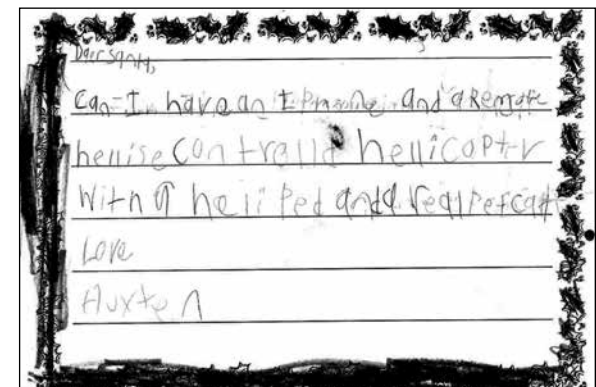 Dear Santa,
Can I have an I Phone and a Remote
hellise controlld hellicopter
With a heli Ped and a real Pet cat
Love
Auxten